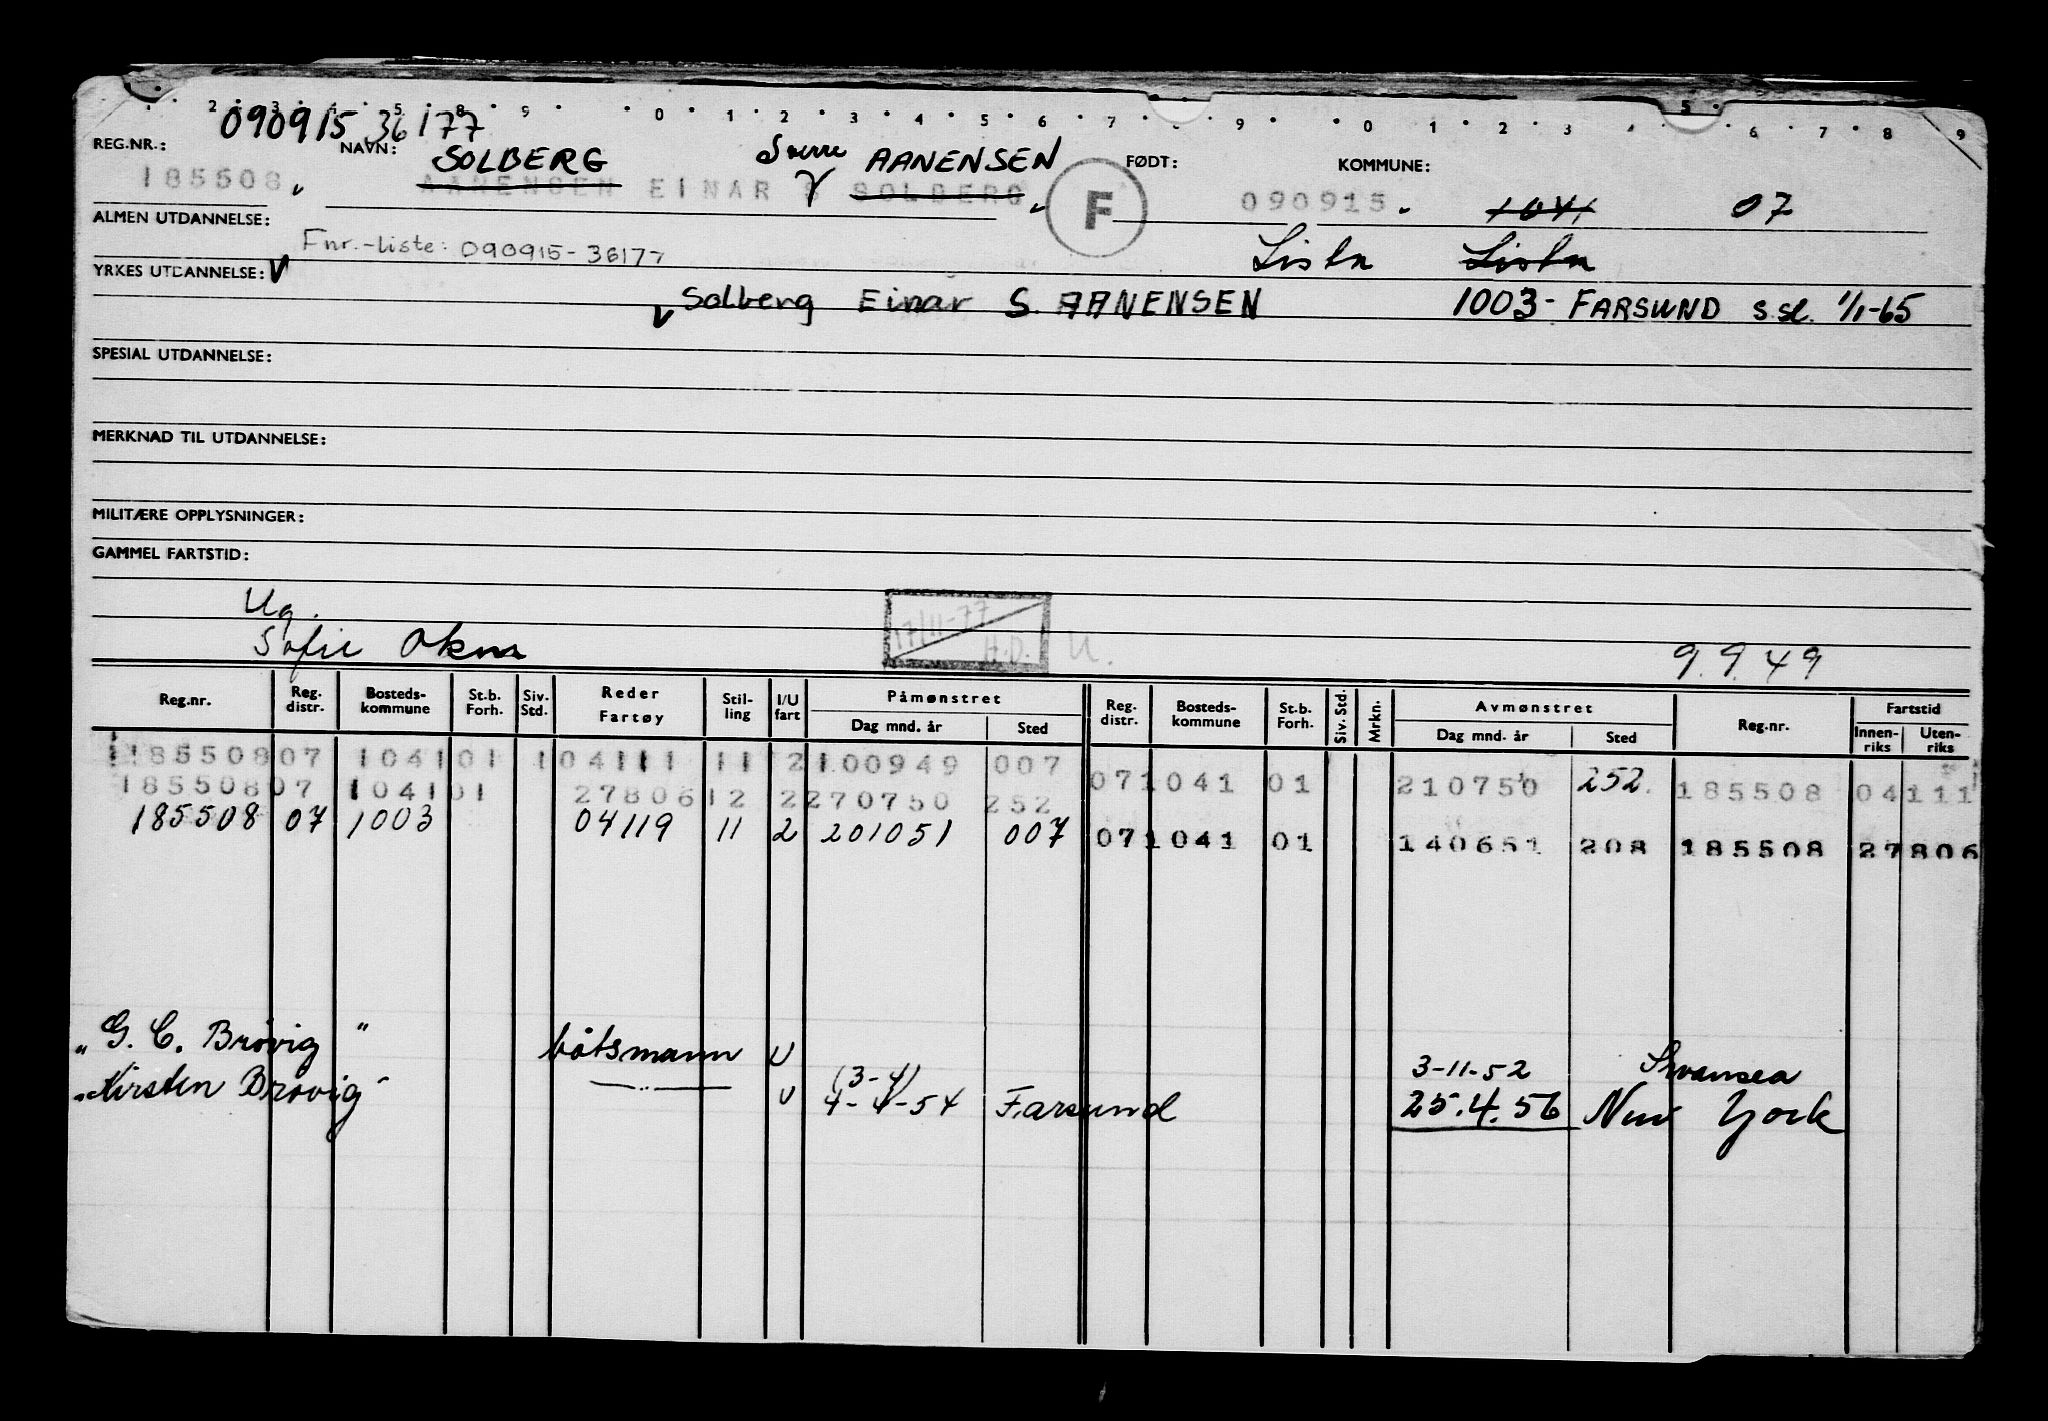 2 3 4 5 8 9 0 1 2 3 4 5 6 7 9 0 1 2 3 5 6 7 8 9
090915 36177
REG.NR.: NAVN: SOLBERG Sverre AANENSEN FØDT: KOMMUNE:
185508 AANENSEN EINAR S SOLBERG F 090915 1041 07
ALMEN UTDANNELSE:
Fnr.-liste: 090915-36177 Lista Lista
YRKES UTDANNELSE: V
V Solberg Einar S. AANENSEN 1003- FARSUND s.sl. 1/1-65
SPESIAL UTDANNELSE:
MERKNAD TIL UTDANNELSE:
MILITÆRE OPPLYSNINGER:
GAMMEL FARTSTID:
Ug.
Sofie 17/11-77 H.D. U. 9.9.49
Reg.nr. Reg. distr. Bosteds- kommune St.b. Forh. Siv. Std. Reder Fartøy Stil- ling I/U fart Påmønstret Dag mnd. år Sted Reg. distr. Bosteds- kommune St.b. Forh. Siv. Std. Mrkn. Avmønstret Dag mnd. år Sted Reg.nr. Fartstid Innen- riks Uten- riks
185508 07 1041 01 1 04111 11 2 100949 007 07 1041 01 210750 252. 185508 04111
185508 07 1041 01 27806 12 2 270750 252
185508 07 1003 04119 11 2 201051 007 07 1041 01 140651 208 185508 27806
"G. C. Brøvig" båtsmann U 3-11-52 Swansea
"Kirsten Brøvig" U (3-4) 4-4-54 Farsund 25.4.56 New York